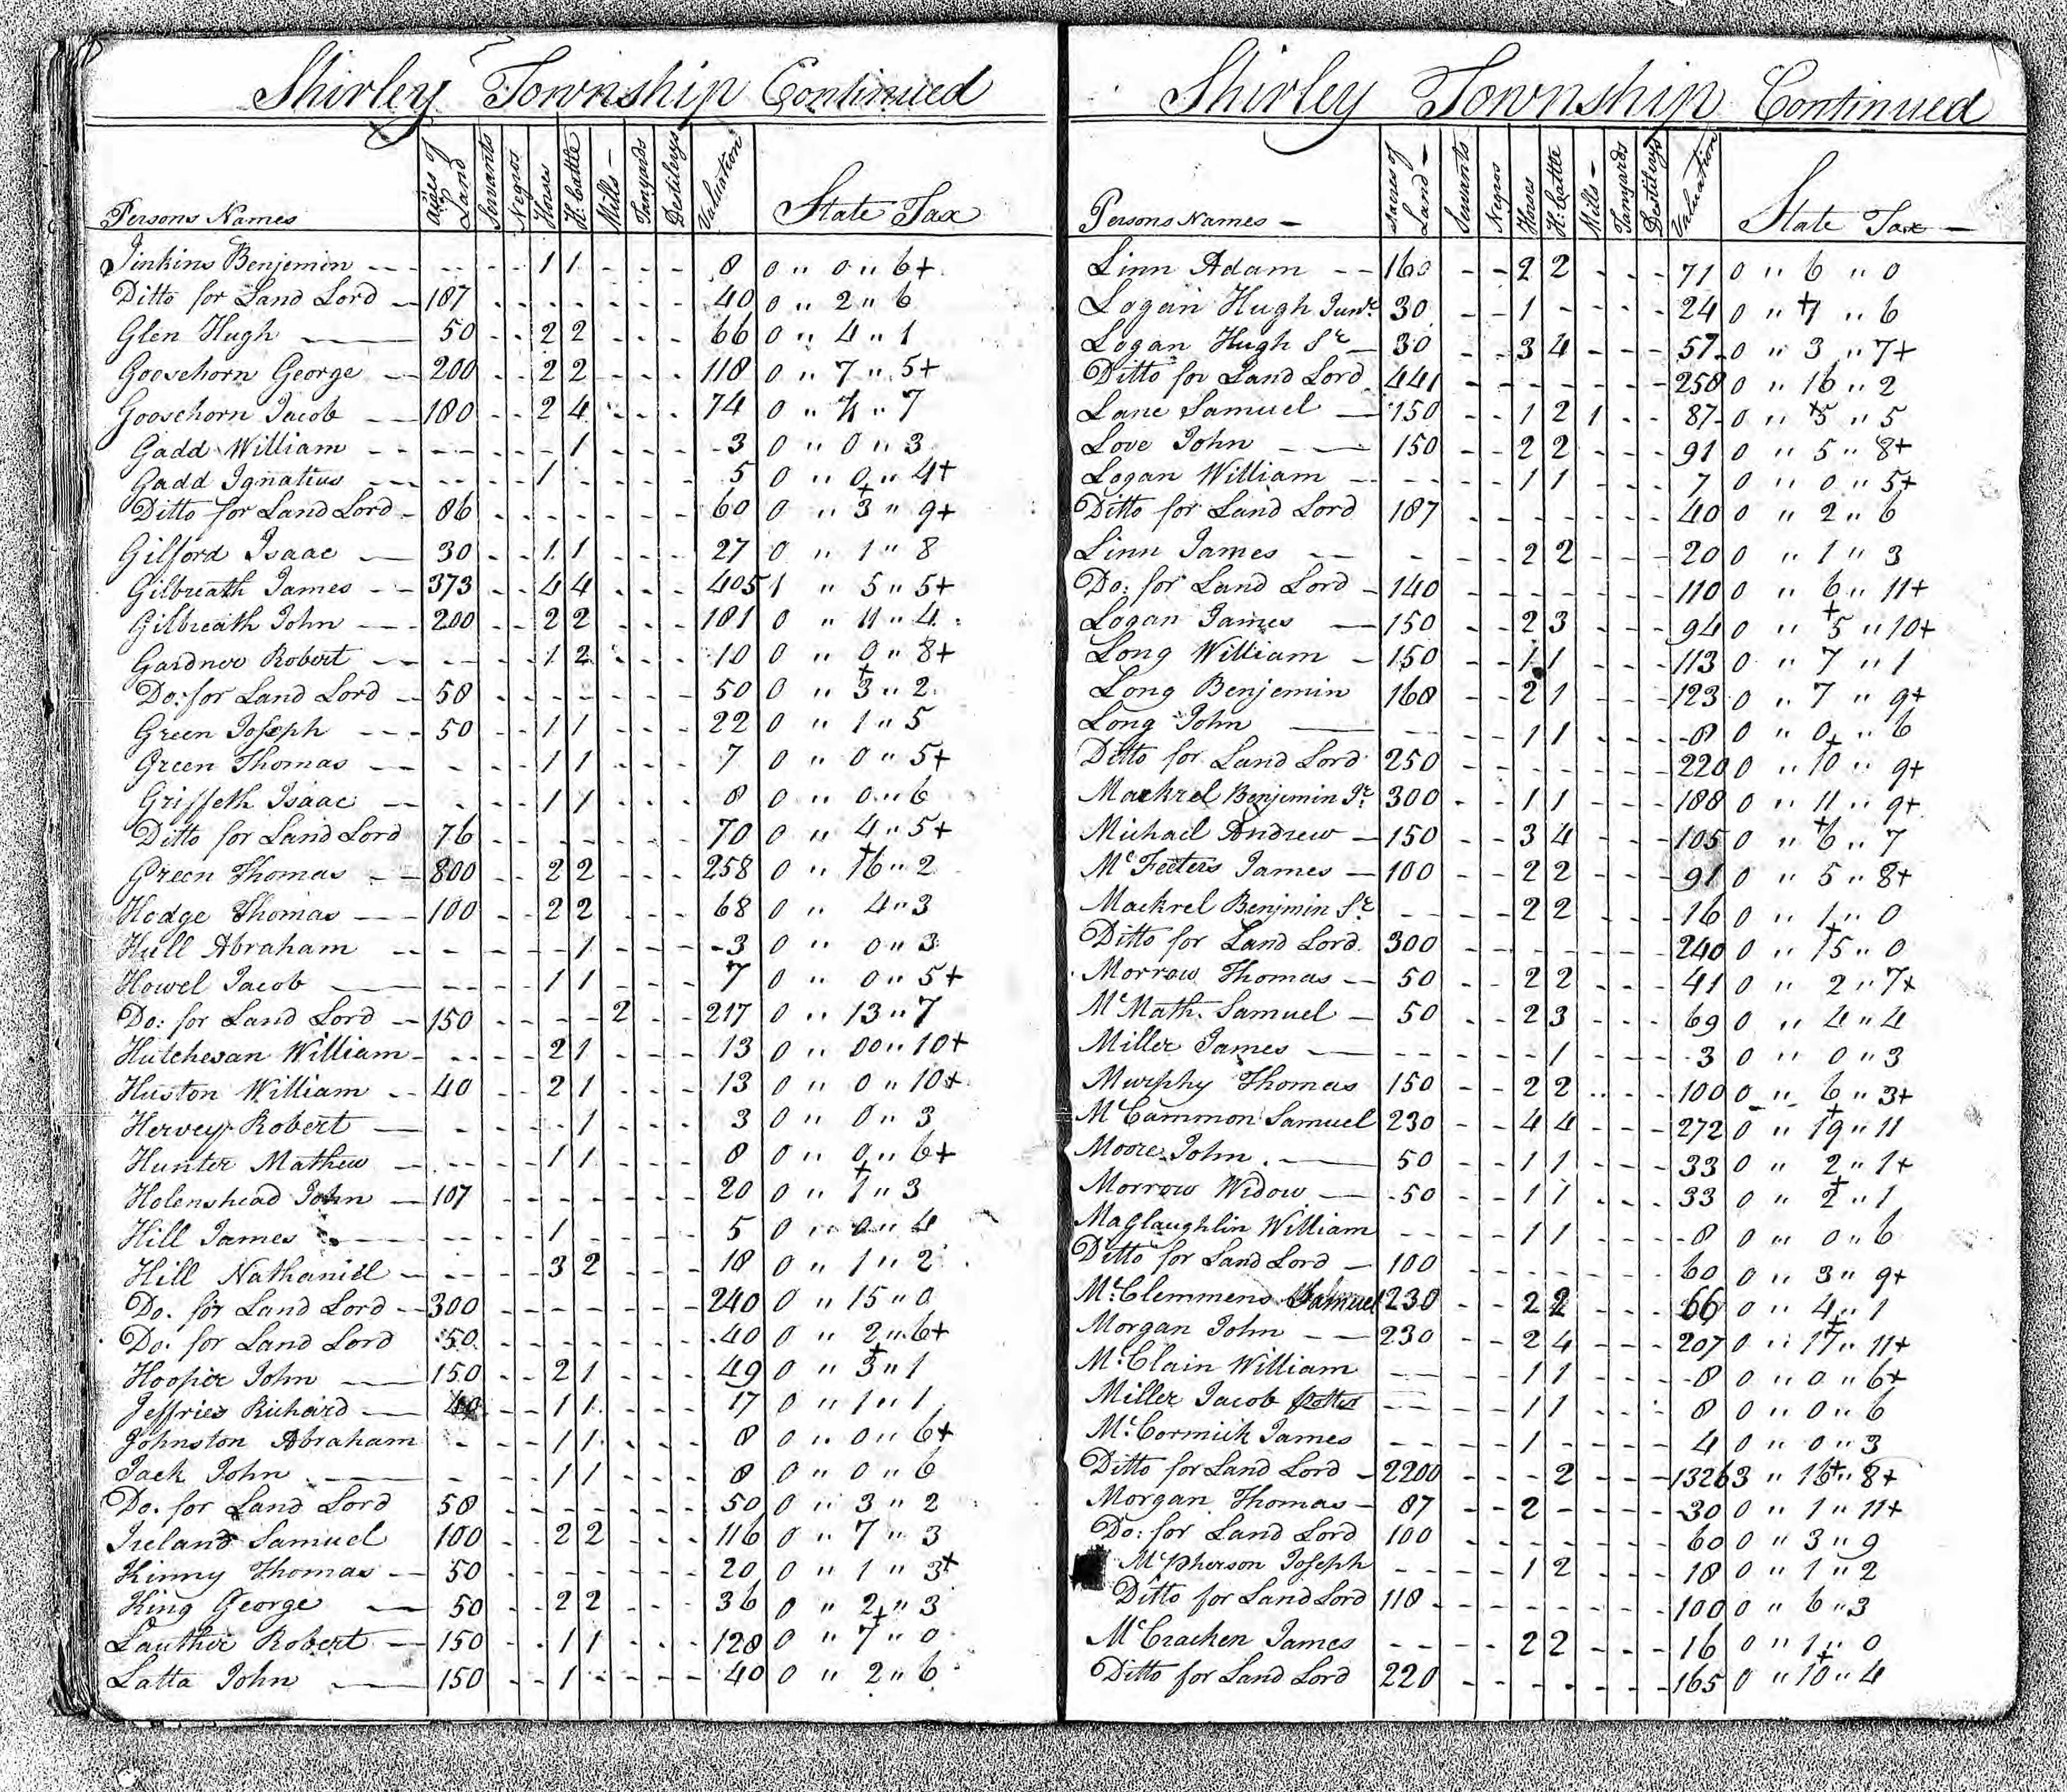 Shirley Township Continued
Persons Names Acres of Land Servants Negros Horses H. Cattle Mills - Tanyards Destilerys Valuation State Tax
Jinkins Benjemin -- 1 1 8 0 " 0 " 6+
Ditto for Land Lord -- 187 40 0 " 2 " 6
Glen Hugh — 50 2 2 66 0 " 4 " 1
Goosehorn George -- 200 2 2 118 0 " 7 " 5+
Goosehorn Jacob -- 180 2 4 74 0 " 4 " 7
Gadd William -- 1 3 0 " 0 " 3
Gadd Ignatius -- 1 5 0 " 0 " 4+
Ditto for Land Lord - 86 60 0 " 3 " 9+
Gilford Isaac — 30 1 1 27 0 " 1 " 8
Gilbreath James -- 373 4 4 405 1 " 5 " 5+
Gilbreath John -- 200 2 2 181 0 " 11 " 4
Gardner Robert -- 1 2 10 0 " 0 " 8+
Do: for Land Lord -- 50 50 0 " 3 " 2
Green Joseph -- 50 1 1 22 0 " 1 " 5
Green Thomas -- 1 1 7 0 " 0 " 5+
Griffeth Isaac -- 1 1 8 0 " 0 " 6
Ditto for Land Lord 76 70 0 " 4 " 5+
Green Thomas -- 800 2 2 258 0 " 16 " 2
Hodge Thomas -- 100 2 2 68 0 " 4 " 3
Hull Abraham -- 1 3 0 " 0 " 3
Howel Jacob — 1 1 7 0 " 0 " 5+
Do: for Land Lord -- 150 2 217 0 " 13 " 7
Hutchesan William - 2 1 13 0 " 00 " 10+
Huston William -- 40 2 1 13 0 " 0 " 10+
Hervey Robert — 1 3 0 " 0 " 3
Hunter Mathew -- 1 1 8 0 " 0 " 6+
Holenshead John -- 107 20 0 " 1 " 3
Hill James — 1 5 0 " 0 " 4
Hill Nathaniel -- 3 2 18 0 " 1 " 2
Do. for Land Lord -- 300 240 0 " 15 " 0
Do. for Land Lord 50 40 0 " 2 " 6+
Hooper John — 150 2 1 49 0 " 3 " 1
Jeffries Richard — 1 1 17 0 " 1 " 1
Johnston Abraham 1 1 8 0 " 0 " 6+
Jack John — 1 1 8 0 " 0 " 6
Do. for Land Lord 50 50 0 " 3 " 2
Ireland Samuel 100 2 2 116 0 " 7 " 3
Kinny Thomas -- 50 20 0 " 1 " 3+
King George — 50 2 2 36 0 " 2 " 3
Lauther Robert -- 150 1 1 128 0 " 7 " 0
Latta John — 150 1 40 0 " 2 " 6
Shirley Township Continued
Persons Names - Acres of Land - Servants Negros Horses H. Cattle Mills - Tanyards Destilerys Valuation State Tax -
Linn Adam -- 160 2 2 71 0 " 6 " 0
Logan Hugh Junr. 30 1 24 0 " 1 " 6
Logan Hugh Sr - 30 3 4 57 0 " 3 " 7+
Ditto for Land Lord 441 258 0 " 16 " 2
Lane Samuel — 150 1 2 1 87 0 " 5 " 5
Love John — 150 2 2 91 0 " 5 " 8+
Logan William -- 1 1 7 0 " 0 " 5+
Ditto for Land Lord 187 40 0 " 2 " 6
Linn James -- 2 2 20 0 " 1 " 3
Do: for Land Lord - 140 110 0 " 6 " 11+
Logan James — 150 2 3 94 0 " 5 " 10+
Long William - 150 1 1 113 0 " 7 " 1
Long Benjemin 160 2 1 123 0 " 7 " 9+
Long John — 1 1 8 0 " 0 " 6
Ditto for Land Lord 250 220 0 " 10 " 9+
Mackrel Benjemin Jr. 300 1 1 188 0 " 11 " 9+
Michael Andrew - 150 3 4 105 0 " 6 " 7
McFeeters James - 100 2 2 91 0 " 5 " 8+
Mackrel Benjmin Sr. 2 2 16 0 " 1 " 0
Ditto for Land Lord 300 240 0 " 15 " 0
Morrow Thomas -- 50 2 2 41 0 " 2 " 7+
McMath Samuel - 50 2 3 69 0 " 4 " 4
Miller James — 1 3 0 " 0 " 3
Murphy Thomas 150 2 2 100 0 " 6 " 3+
McCammon Samuel 230 4 4 272 0 " 19 " 11
Moore John — 50 1 1 33 0 " 2 " 1+
Morrow Widow — 50 1 1 33 0 " 2 " 1
MaGlaughlin William 1 1 8 0 " 0 " 6
Ditto for Land Lord - 100 60 0 " 3 " 9+
McClemmens Samuel 230 2 2 66 0 " 4 " 1
Morgan John -- 230 2 4 207 0 " 17 " 11+
McClain William 1 1 8 0 " 0 " 6+
Miller Jacob Potter 1 1 8 0 " 0 " 6
McCormick James 1 4 0 " 0 " 3
Ditto for Land Lord - 2200 2 1326 3 " 16 " 8+
Morgan Thomas - 87 2 30 0 " 1 " 11+
Do: for Land Lord 100 60 0 " 3 " 9
McPherson Joseph 1 2 18 0 " 1 " 2
Ditto for Land Lord 118 100 0 " 6 " 3
McCracken James 2 2 16 0 " 1 " 0
Ditto for Land Lord 220 165 0 " 10 " 4